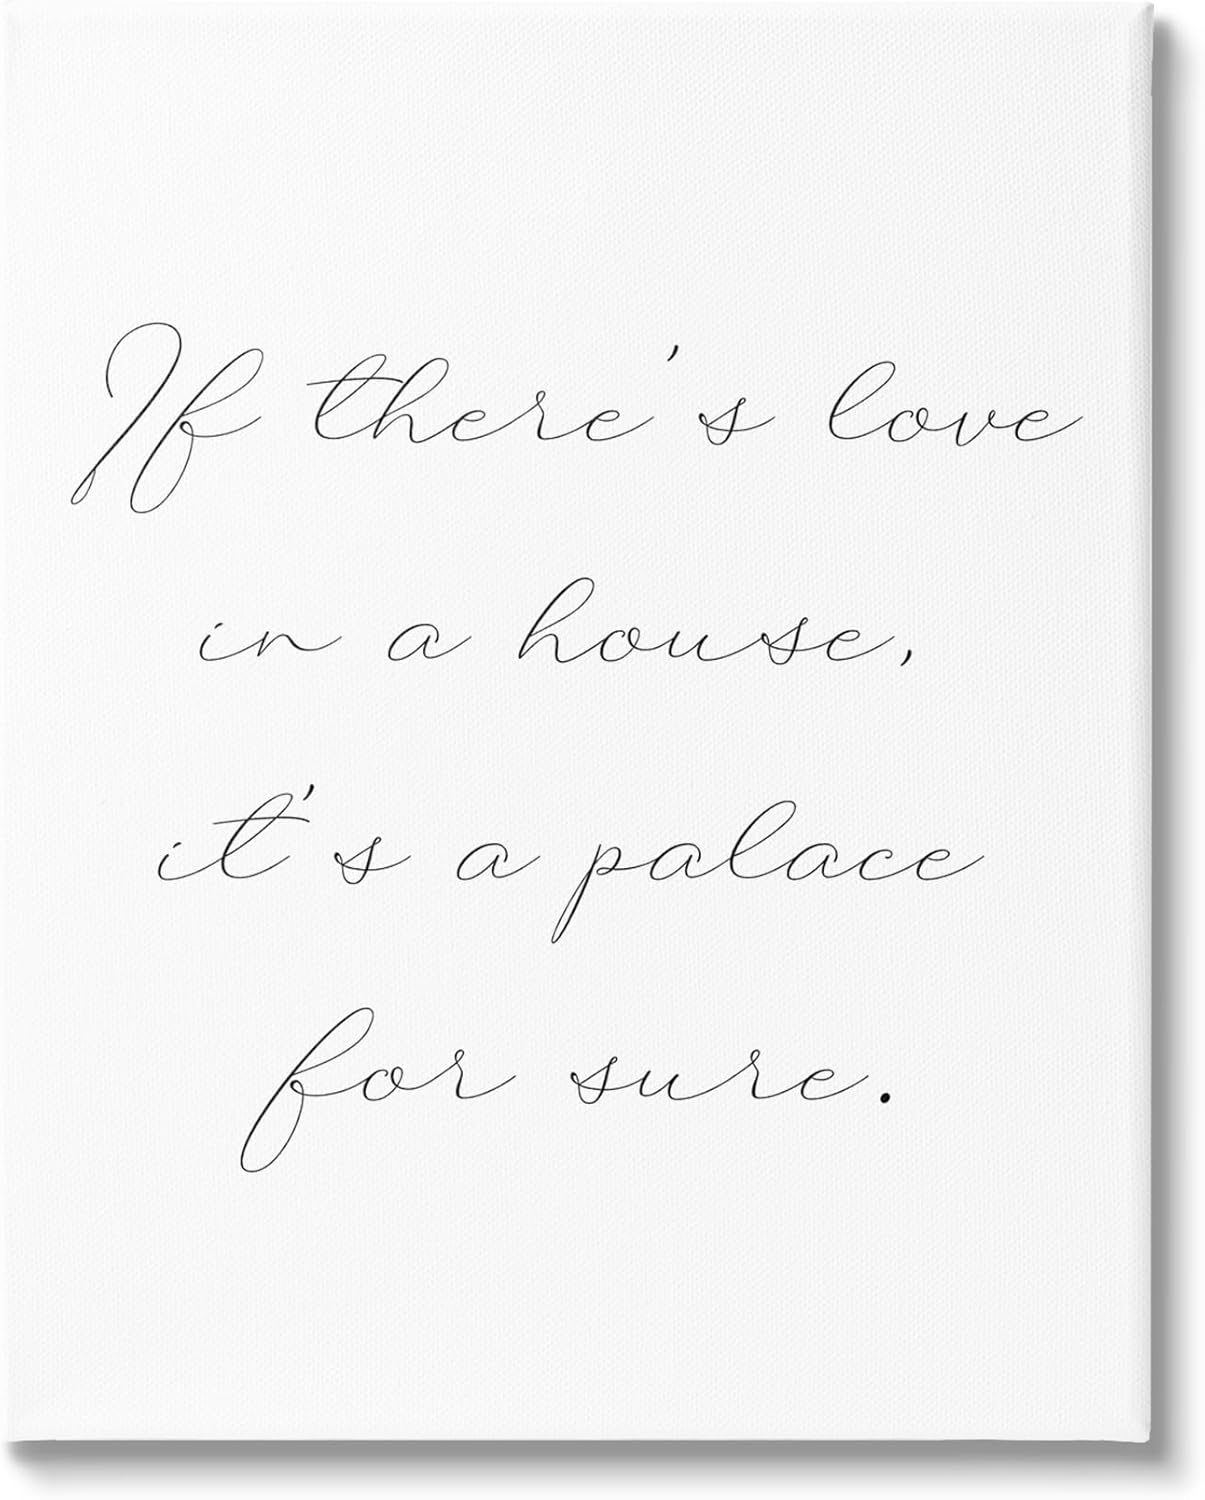 If there's love
in a house,
it's a palace
for sure.